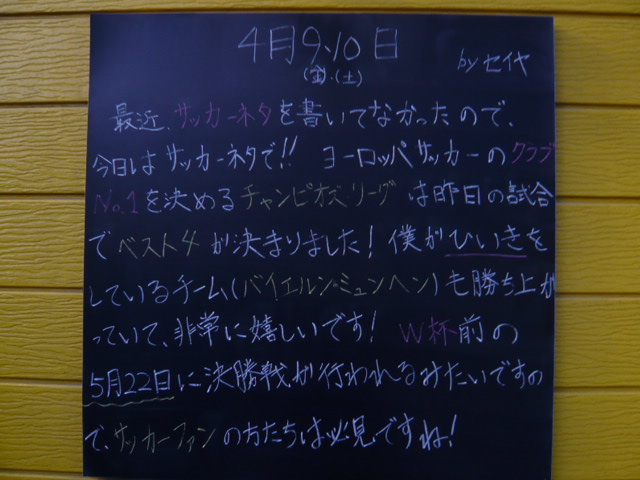 4月9、10日
(金)・(土)
by セイヤ
最近、サッカーネタを書いてなかったので、
今日はサッカーネタで!! ヨーロッパサッカーのクラブ
No.1を決めるチャンピオズリーグは昨日の試合
でベスト4が決まりました！僕がひいきを
しているチーム(バイエルン・ミュンヘン)も勝ち上が
っていて、非常に嬉しいです！ W杯前の
5月22日に決勝戦が行われるみたいですの
で、サッカーファンの方たちは必見ですね！